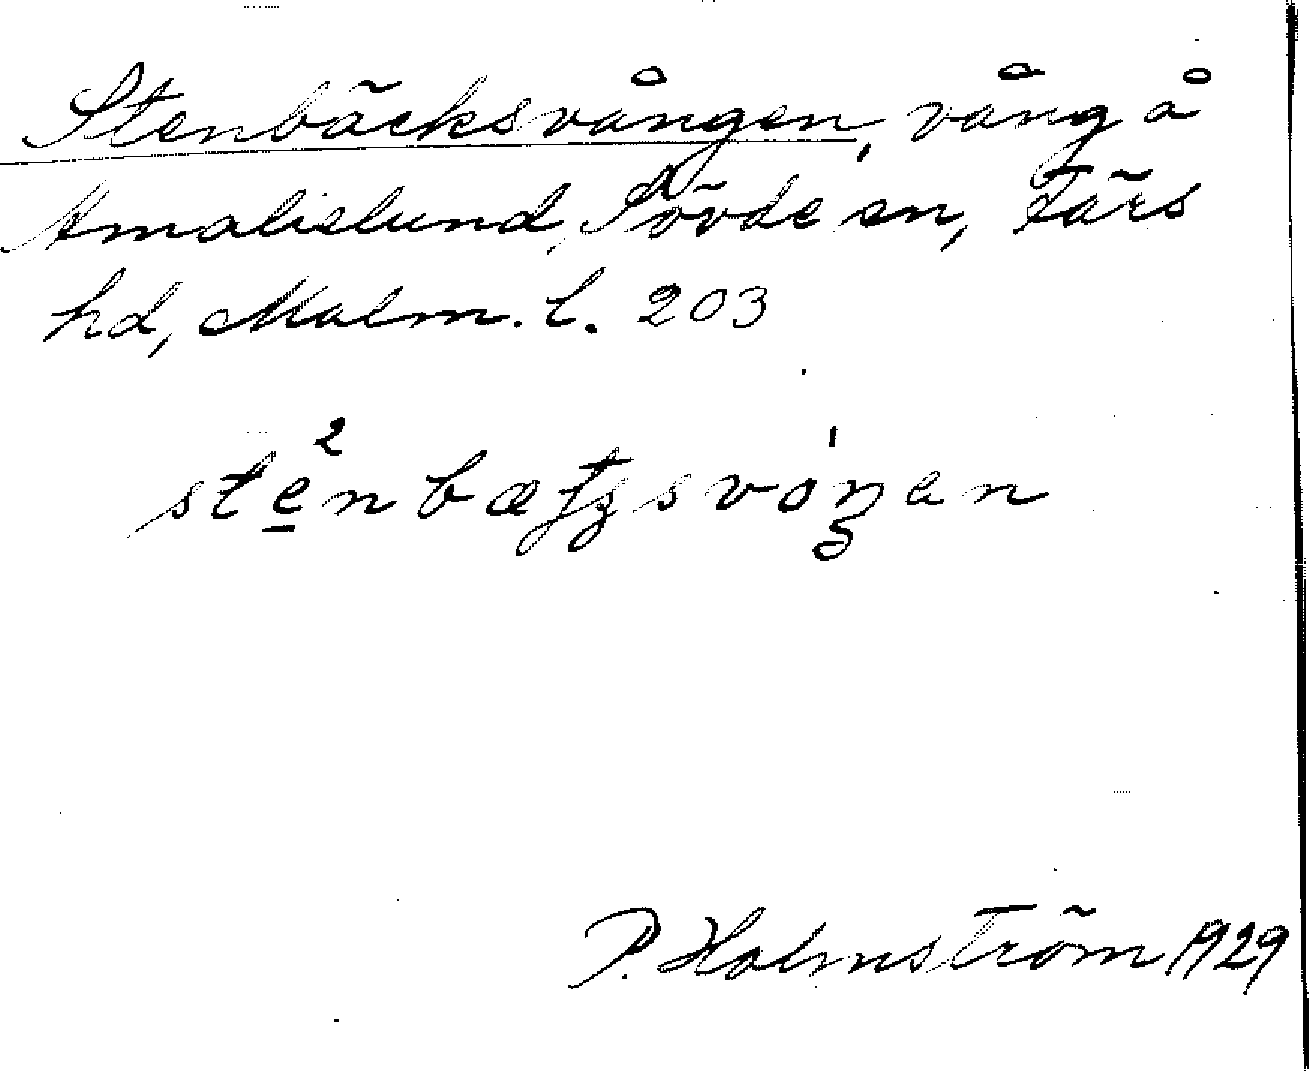 Stenbäcksvången, vång å
Amalielund, Sövde sn, Färs
hd, Malm. l. 203
P. Holmström 1929